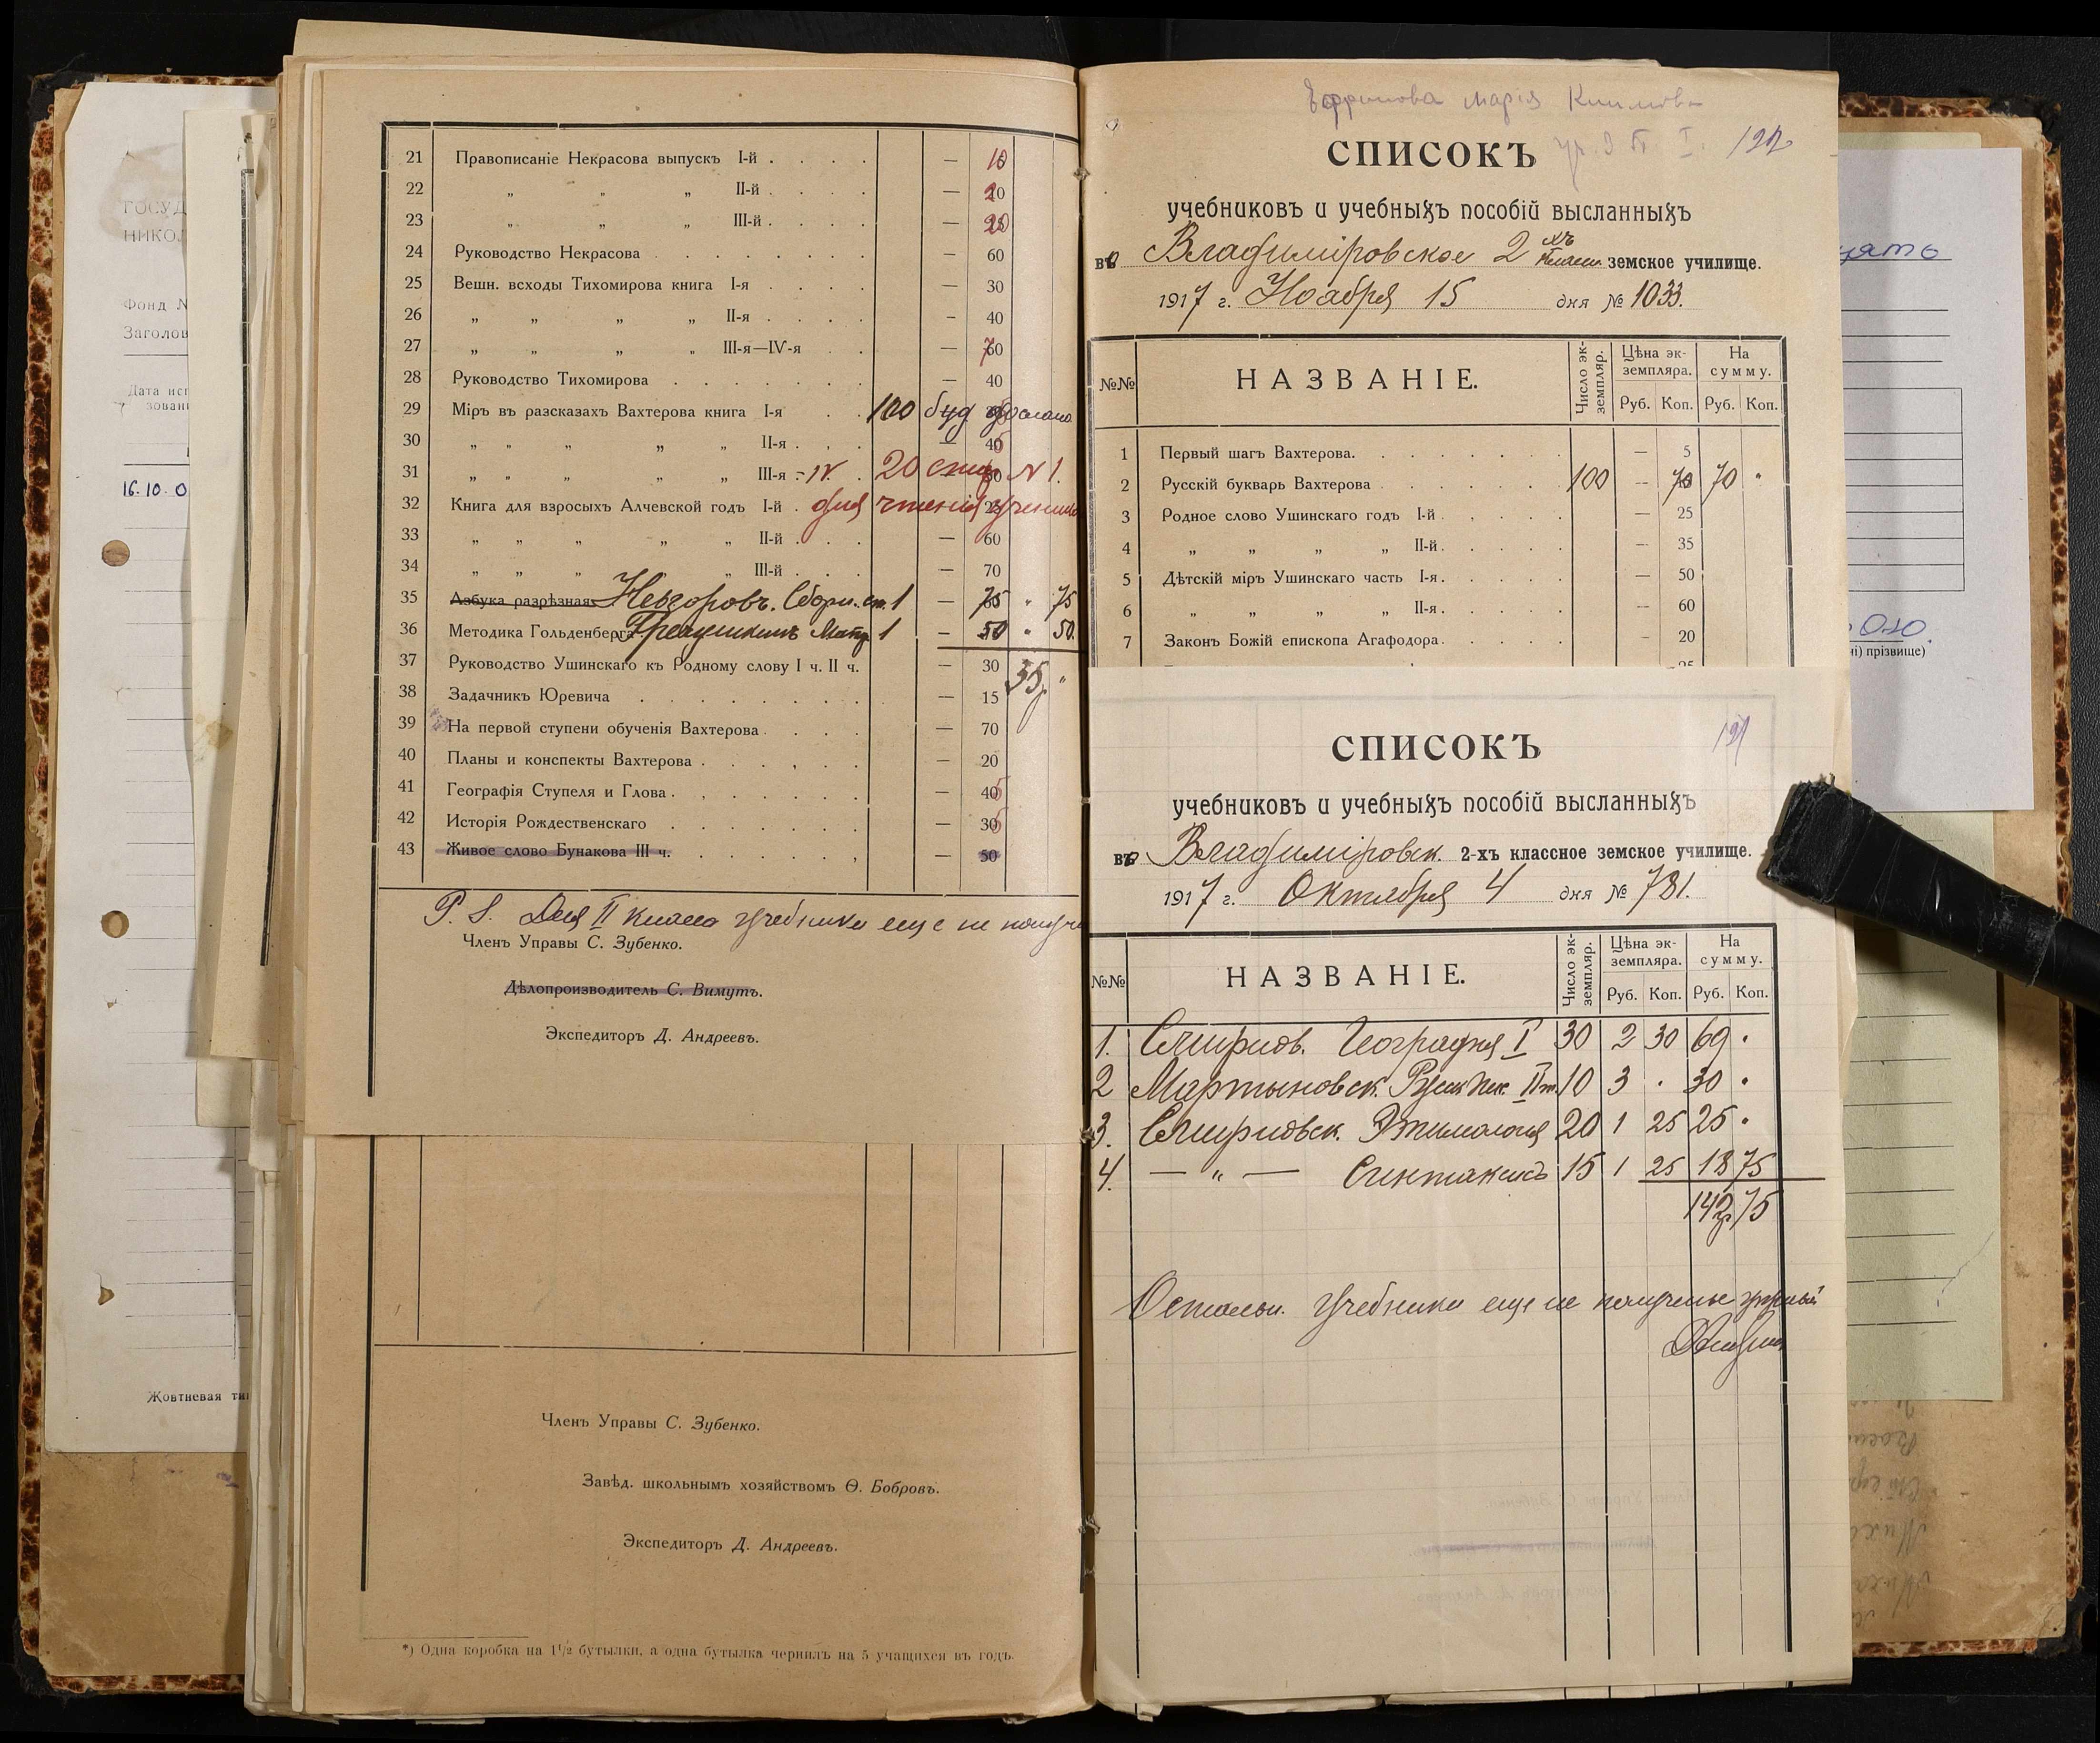 21 Правописаніе Некрасова выпускъ I-й . . . . — 10
22 „ „ „ II-й . . . . — 20
23 „ „ „ III-й . . . . — 20
24 Руководство Некрасова . . . . . . . . — 60
25 Вешн. всходы Тихомирова книга I-я . . . . — 30
26 „ „ „ „ II-я . . . . — 40
27 „ „ „ „ III-я—IV-я . . — 70
28 Руководство Тихомирова . . . . . . . — 40
29 Міръ въ разсказахъ Вахтерова книга I-я . . 100 буд. дослано
30 „ „ „ „ „ II-я . . . — 45
31 „ „ „ „ „ III-я - IV. . 20 N 1.
32 Книга для взросыхъ Алчевской годъ I-й . для чтенія
33 „ „ „ „ „ II-й . . . — 60
34 „ „ „ „ III-й . . . — 70
35 Азбука разрѣзная 1 — 75 „ 75
36 Методика Гольденберга 1 — 50 „ 50.
37 Руководство Ушинскаго къ Родному слову I ч. II ч. — 30
38 Задачникъ Юревича . . . . . . . . — 15
39 На первой ступени обученія Вахтерова . . . . — 70
40 Планы и конспекты Вахтерова . . . . . — 20
41 Географія Ступеля и Глова . . . . . . . — 45
42 Исторія Рождественскаго . . . . . . . — 35
43 Живое слово Бунакова III ч. . . . . . . — 50
P. S. Для II класса учебники еще не
Членъ Управы С. Зубенко.
Дѣлопроизводитель С. Вимутъ.
Экспедиторъ Д. Андреевъ.
Членъ Управы С. Зубенко.
Завѣд. школьнымъ хозяйствомъ Ѳ. Бобровъ.
Экспедиторъ Д. Андреевъ.
*) Одна коробка на 1½ бутылки, а одна бутылка чернилъ на 5 учащихся въ годъ.
Марія
СПИСОКЪ
учебниковъ и учебныхъ пособій высланныхъ
во Владиміровское 2 хъ класн. земское училище.
1917 г. Ноября 15 дня № 1033.
№№ НАЗВАНІЕ. Число экземпляр. Цѣна экземпляра. На сумму.
Руб. Коп. Руб. Коп.
1 Первый шагъ Вахтерова. . . . . . . . — 5
2 Русскій букварь Вахтерова . . . . . . . 100 — 70 70 „
3 Родное слово Ушинскаго годъ I-й . . . . . — 25
4 „ „ „ „ II-й . . . . . — 35
5 Дѣтскій міръ Ушинскаго часть I-я . . . . . — 50
6 „ „ „ „ II-я . . . . . — 60
7 Законъ Божій епископа Агафодора . . . . . — 20
СПИСОКЪ
учебниковъ и учебныхъ пособій высланныхъ
во Владиміровск. 2-хъ классное земское училище.
1917 г. Октября 4 дня № 781.
№№ НАЗВАНІЕ. Число экземпляр. Цѣна экземпляра. На сумму.
Руб. Коп. Руб. Коп.
1. Смирнов. Географія I 30 2 30 69 „
2 Мартыновск. 10 3 „ 30 „
3. Смирновск. Этимологія 20 1 25 25 „
4. — „ — Синтаксисъ 15 1 25 18 75
142 р. 75
Остальн. учебники еще не получены
ГОСУД
НИКОЛ
Фонд N
Заголов
Дата исп
зовани
16.10.0
Жовтневая ти
ять
ні) прізвище)